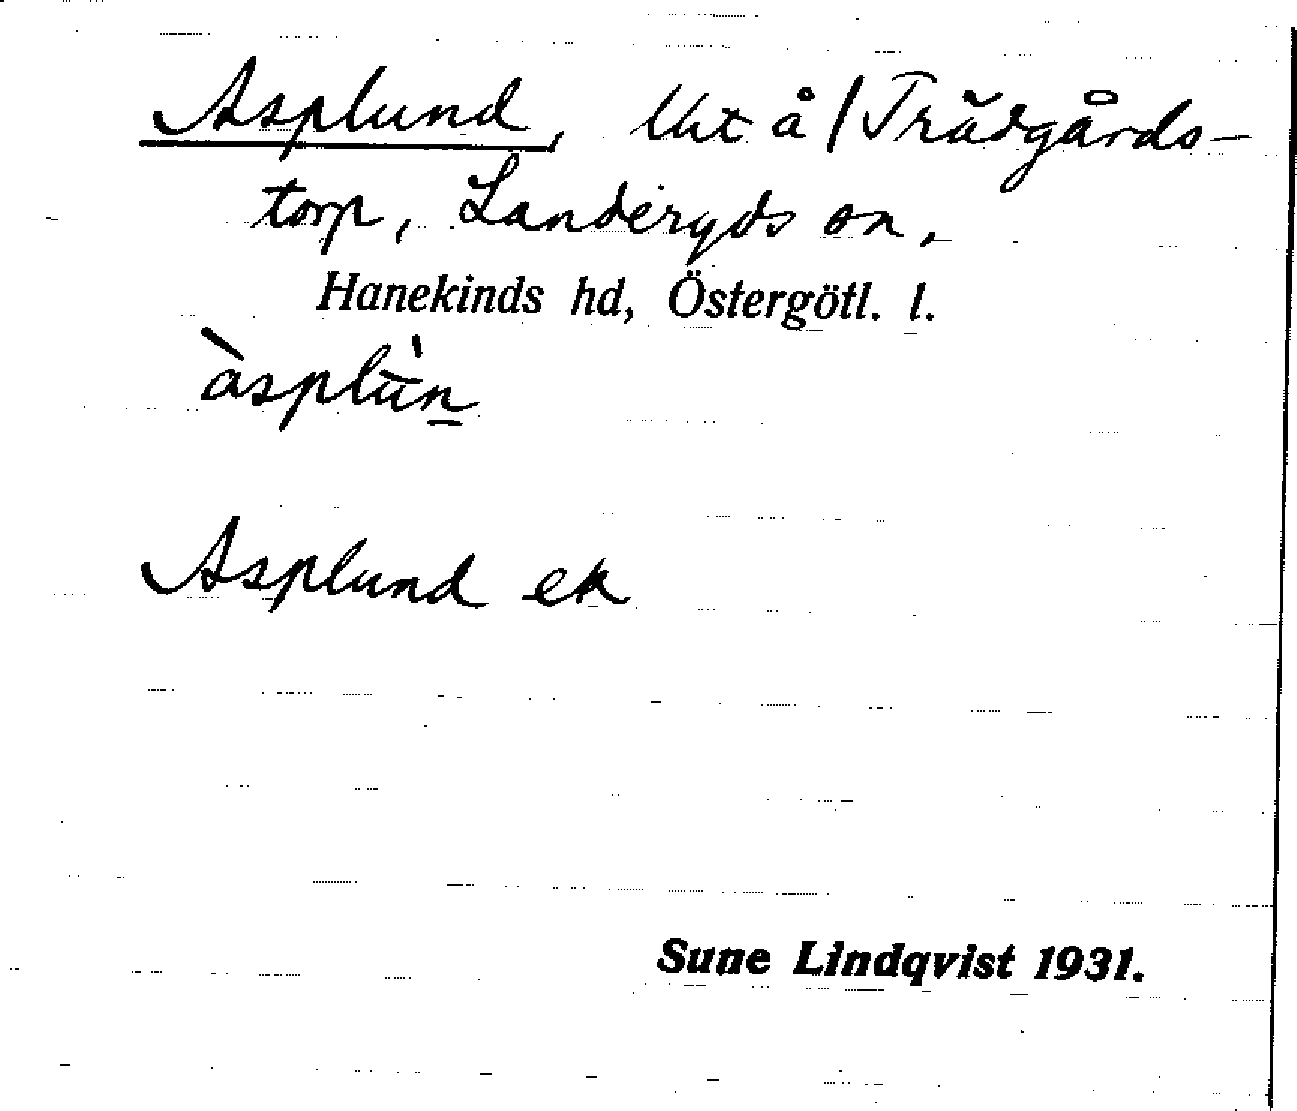 Asplund, Utå/Trädgårds-
torp, Landeryds sn,
Hanekinds hd, Östergötl. l.
àsplùn
Asplund ek
Sune Lindqvist 1931.